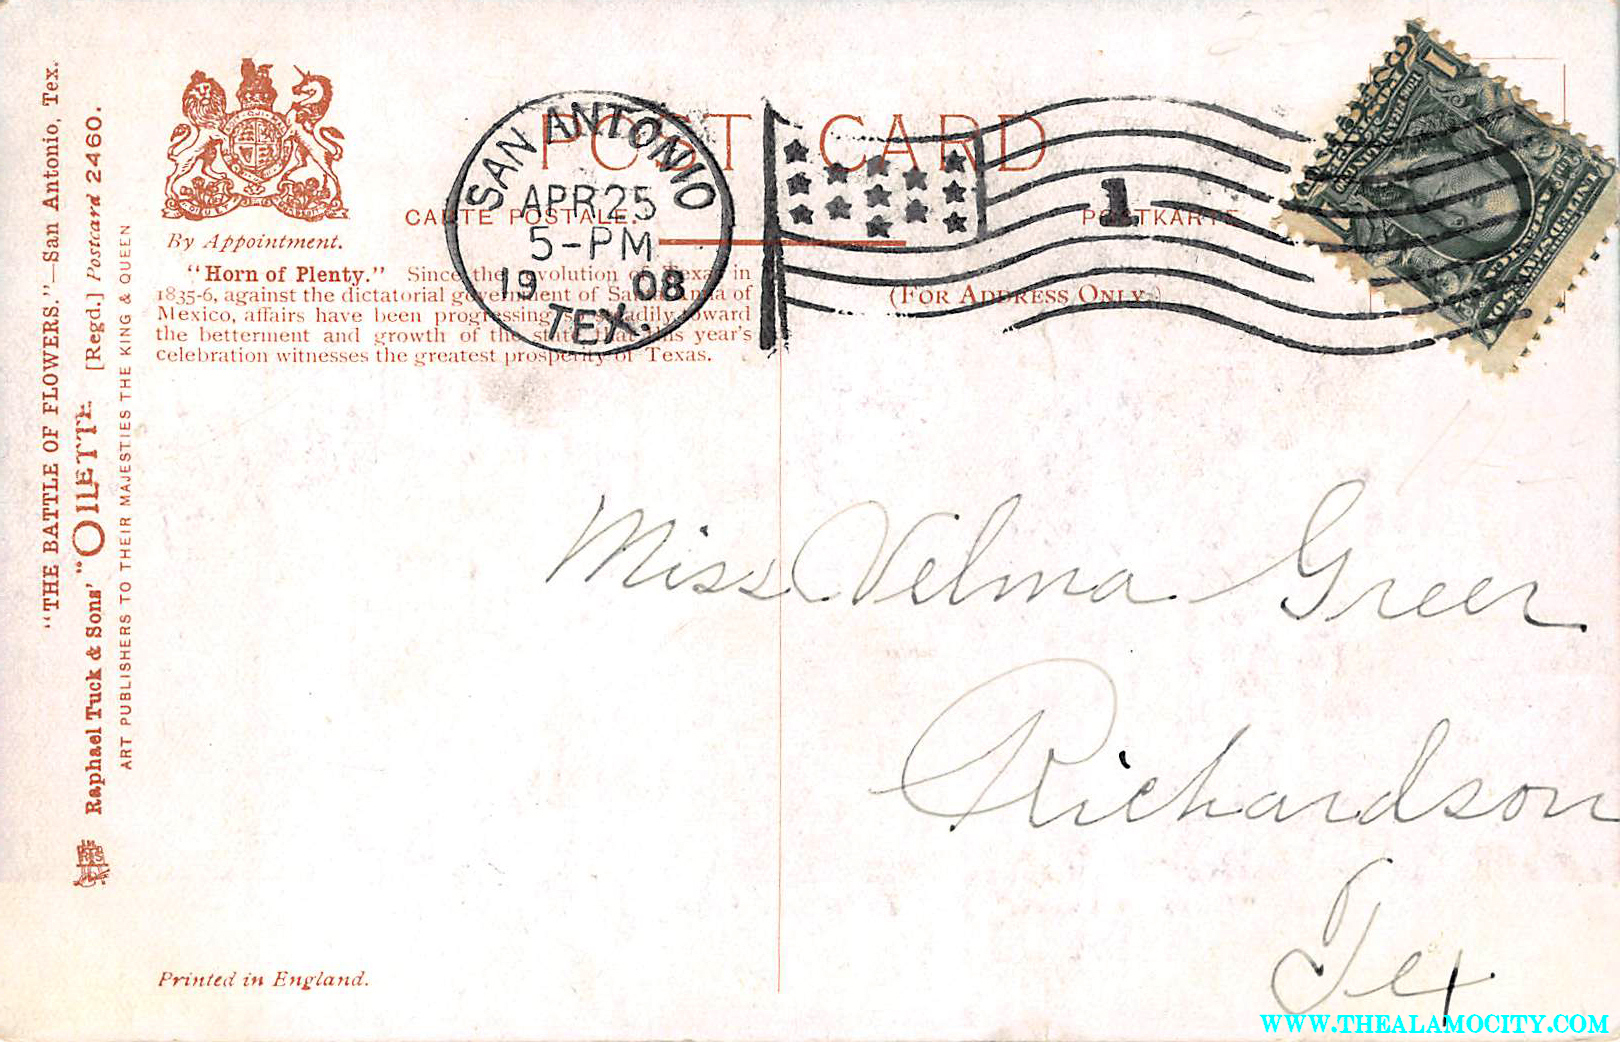 "THE BATTLE OF FLOWERS."—San Antonio, Tex.
Raphael Tuck & Sons' "OILETTE [Regd.] Postcard 2460.
ART PUBLISHERS TO THEIR MAJESTIES THE KING & QUEEN
By Appointment.
POST CARD
CARTE POSTALE. POSTKARTE
(FOR ADDRESS ONLY.)
"Horn of Plenty." Since the revolution of Texas in
1835-6, against the dictatorial government of Santa Anna of
Mexico, affairs have been progressing steadily toward
the betterment and growth of the state that this year's
celebration witnesses the greatest prosperity of Texas.
SAN ANTONIO
APR 25
5-PM
1908
TEX.
1
1
SERIES 1902
UNITED STATES OF AMERICA
Miss Velma Greer
Richardson
Tex
Printed in England.
WWW.THEALAMOCITY.COM